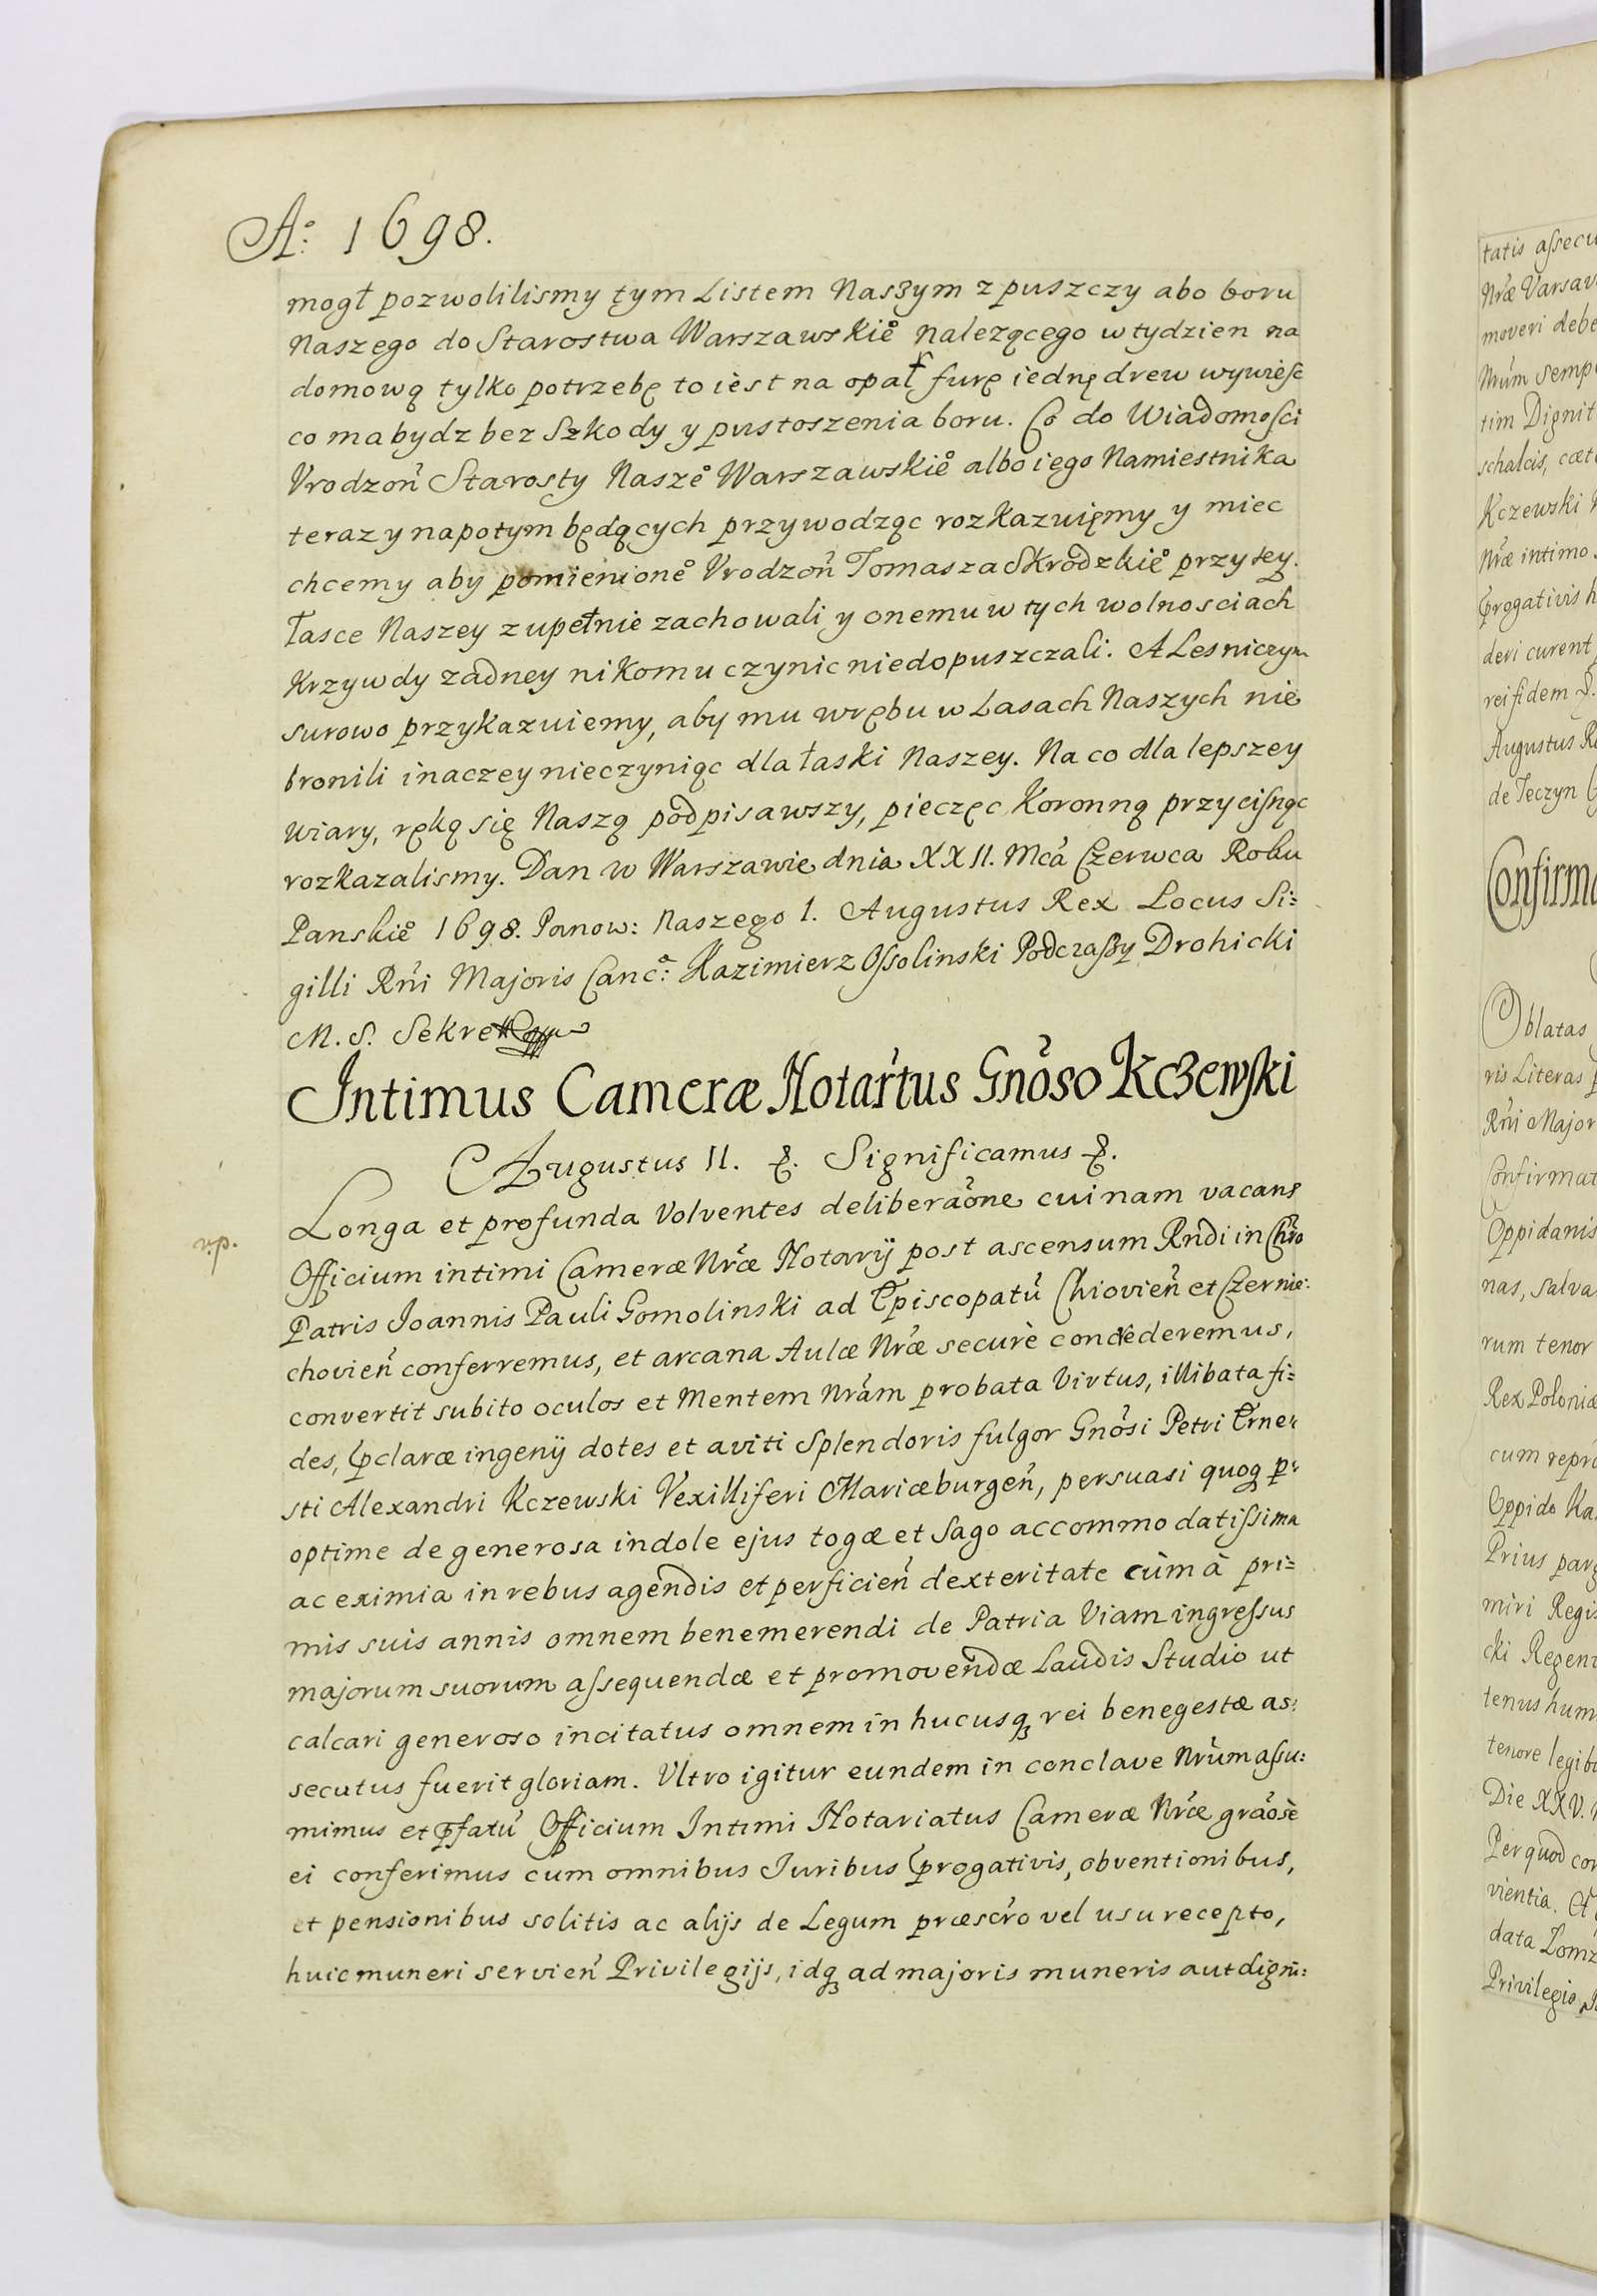 Aº: 1698.
mogł pozwolilismy tym Listem Naszym z puszczy abo boru
Naszego do Starostwa Warszawskiẻ nalezącego w tydzien na
domową tylko potrzebę to iest na opał furę iednę drew wywieść
co ma bydz bez Szkody y pustoszenia boru. Co do Wiadomości
Vrodzoñ Starosty Naszeº Warszawskieº albo iego Namiestnika
teraz y napotym będących przywodząc rozkazuięmy y miec
chcemy aby pomienioneº Vrodzoñ Tomasza Skrodzkieº przy tey
łasce Naszey zupełnie zachowali y onemu w tych wolnosciach
Krzywdy zadney nikomu czynic niedopuszczali. A Lesniczym
surowo przykazuiemy, aby mu wrębu w Lasach Naszych nie
bronili inaczey nieczyniąc dla łaski Naszey. Na co dla lepszey
wiary, ręką się Naszą podpisawszy, pieczęc Koronną przycisnąc
rozkazalismy. Dan w Warszawie dnia XXII. Mcá Czerwca Roku
Panskieº 1698. Panow: Naszego 1. Augustus Rex Locus Si=
gilli Rñi Majoris Cancª: Kazimierz Ossolinski Podczaszy Drohicki
M. S. Sekret
Intimus Cameræ Notar'tus Gnõso Kczewski
Augustus II. &. Significamus &.
Longa et profunda Volventes deliberaõne cuinam vacans
v.p.
Officium intimi Cameræ Nræ Notarij post ascensum Rndi in Chro
Patris Joannis Pauli Gomolinski ad Episcopatũ Chiovieñ et Czernie:
chovieñ conferremus, et arcana Aulæ Nræ securè concrederemus,
convertit subito oculos et Mentem Nrãm probata Virtus, illibata fi=
des, p̃claræ ingenij dotes et aviti Splendoris fulgor Gnõsi Petri Erne=
sti Alexandri Kczewski Vexilliferi Mariæburgeñ, persuasi quoq p=
optime de generosa indole ejus togæ et Sago accommodatissima
ac eximia in rebus agendis et perficieñ dexteritate cùm à pri=
mis suis annis omnem benemerendi de Patria Viam ingressus
majorum suorum assequendæ et promovendæ Laudis Studio ut
calcari generoso incitatus omnem in hucusq rei benegestæ as=
secutus fuerit gloriam. Ultro igitur eundem in conclave Nrũm assu=
mimus et p̃fatũ Officium Intimi Notariatus Cameræ Nræ graõsè
ei conferimus cum omnibus Juribus p̃rogativis, obventionibus,
et pensionibus solitis ac alijs de Legum præscr̃o vel usu recepto,
huic muneri servieñ Privilegijs, idq ad majoris muneris aut digni=
tatis assecu
Nræ Varsav
moveri debe
Nrũm semp
tim Dignit
schalcis, cæt
Kczewski
Nræ intimo
p̃rogativis h
deri curent
rei fidem &.
Augustus R
de Teczyn
Confirma
Oblatas
ris Literas
Rñi Major
Confirmat
Oppidanis
nas, salva
rum tenor
Rex Poloniæ
cum repr
Oppido Ka
Prius parg
miri Regis
cki Regent
tenus hum
tenore legib
Die XXV.
Per quod con
vientia. Et
data Lomz
Privilegio